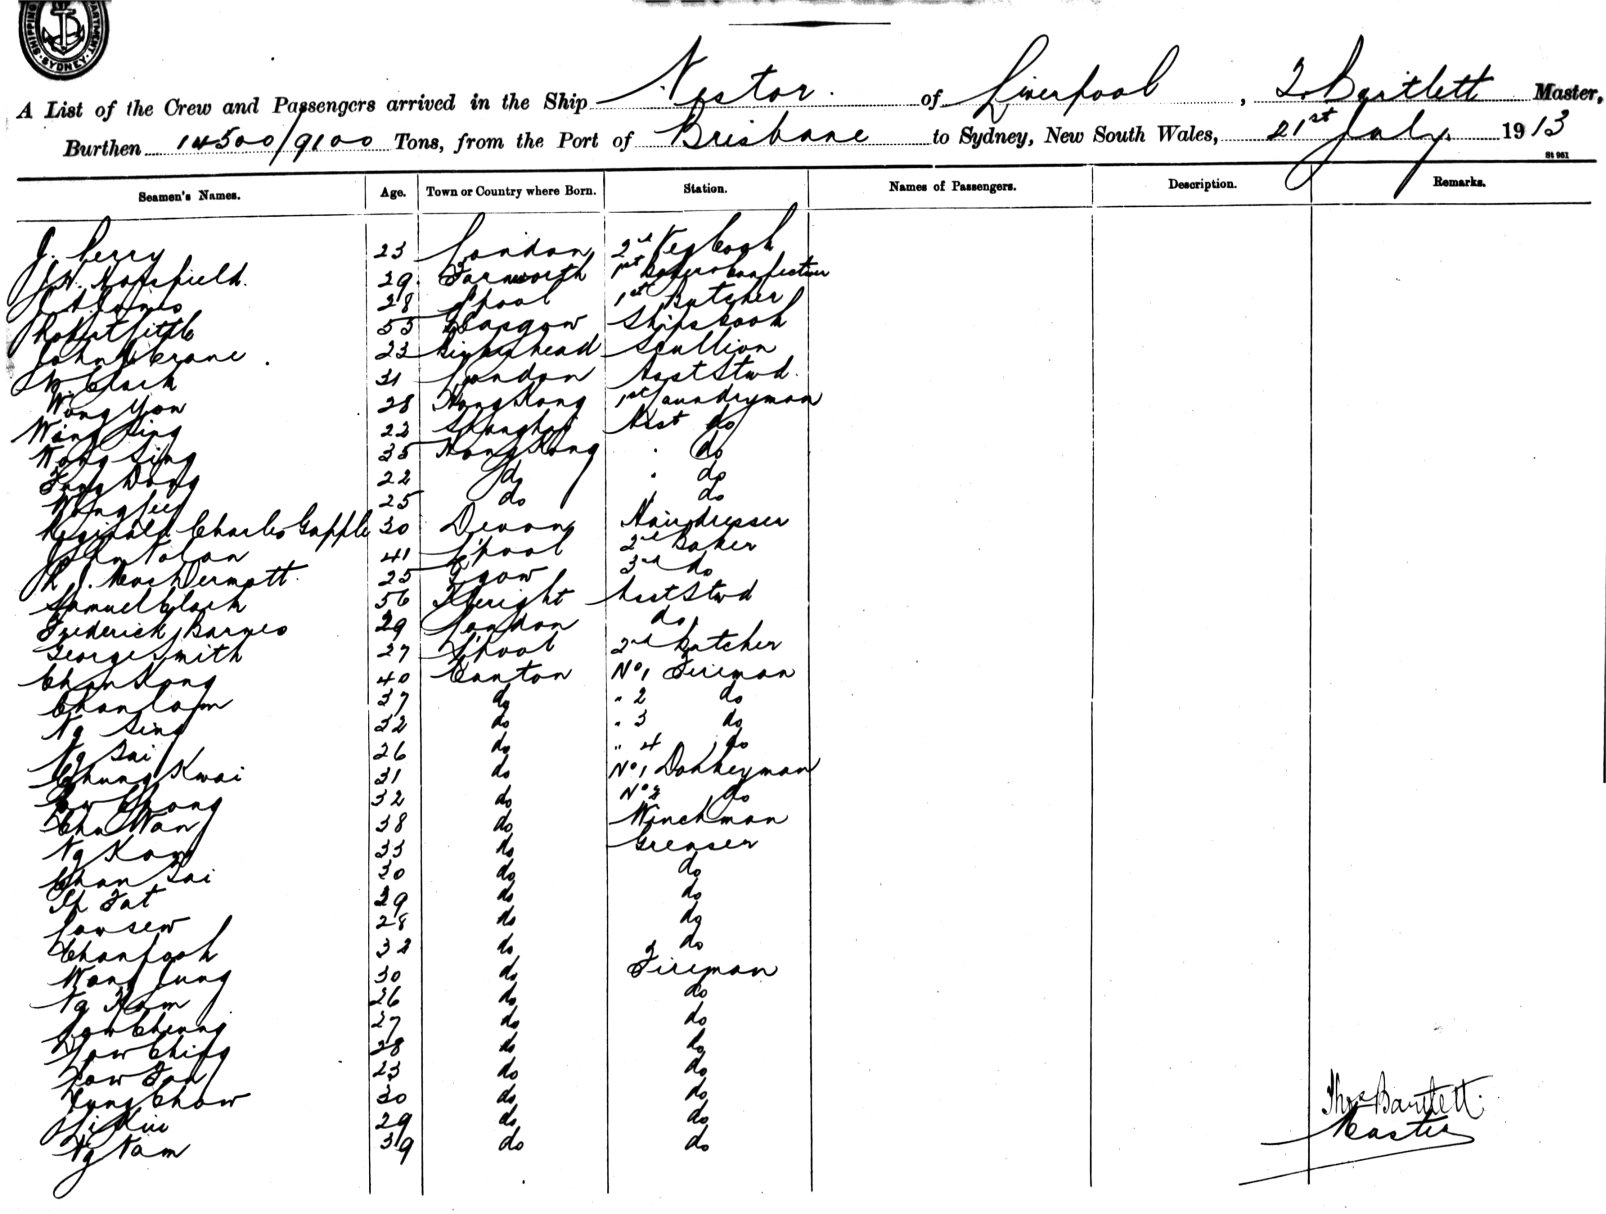 SHIPPING DEPARTMENT SYDNEY
A List of the Crew and Passengers arrived in the Ship Nestor. of Liverpool, T. Bartlett Master,
Burthen 14500/9100 Tons, from the Port of Brisbane to Sydney, New South Wales, 21st July 1913
St 961
Seamen's Names. Age. Town or Country where Born. Station. Names of Passengers. Description. Remarks.
J. Perry 23 London 2nd Veg Cook
J. H. 29 Farnworth 1st Baker & Confectioner
28 L'pool 1st Butcher
Robert Little 53 Glasgow Ships Cook
John McCrane 23 Birkenhead Scullion
W. Clark 31 London Asst Stwd.
Wong Yon 28 Hong Kong 1st Laundryman
Wong Ling 22 Shanghai Asst do
Wong Sing 35 Hong Kong " do
Fong Dong 22 do " do
Wong 25 do " do
Reginald Charles Gapple 30 Devon Hairdresser
John Nolan 41 L'pool 2nd Baker
R. J. MacDermott. 25 G'gow 3rd do
Samuel Clark 56 Asst Stwd
Frederick Barnes 29 London do
George Smith 27 L'pool 2nd Butcher
Chan Kong 40 Canton No 1 Fireman
Chan Lam 37 do " 2 do
Ng Sing 32 do " 3 do
Ng Sai 26 do " 4 do
Chung Kwai 31 do No 1 Donkeyman
Chong 32 do No 2 do
Chu Wan 38 do Winchman
Ng Kong 33 do Greaser
Chan Sai 30 do do
Ip Fat 29 do do
Low Sew 28 do do
Chan Fook 32 do do
Wong Jung 30 do Fireman
Ng Kam 26 do do
Low Cheung 27 do do
Low Ching 28 do do
Low Fon 23 do do
Fung Chow 30 do do
Li Kiu 29 do do
Ng Nam 39 do do
Thos Bartlett.
Master